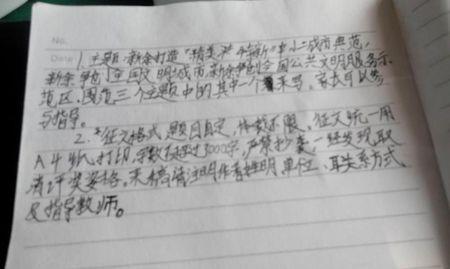 No.
Date 1. 主题:新余打造"精美洋气新"中小城市典范,
新余争创全国文明城市,新余争创全国公共文明服务示
范区,围绕三个主题中的其中一个来写,家长可以参
与指导。
2. *征文格式,题目自定,体裁不限。征文统一用
A4纸打印,字数不超过3000字,严禁抄袭,经发现取
消评奖资格。来稿请注明作者姓明单位、耳关系方式
及指导教师。